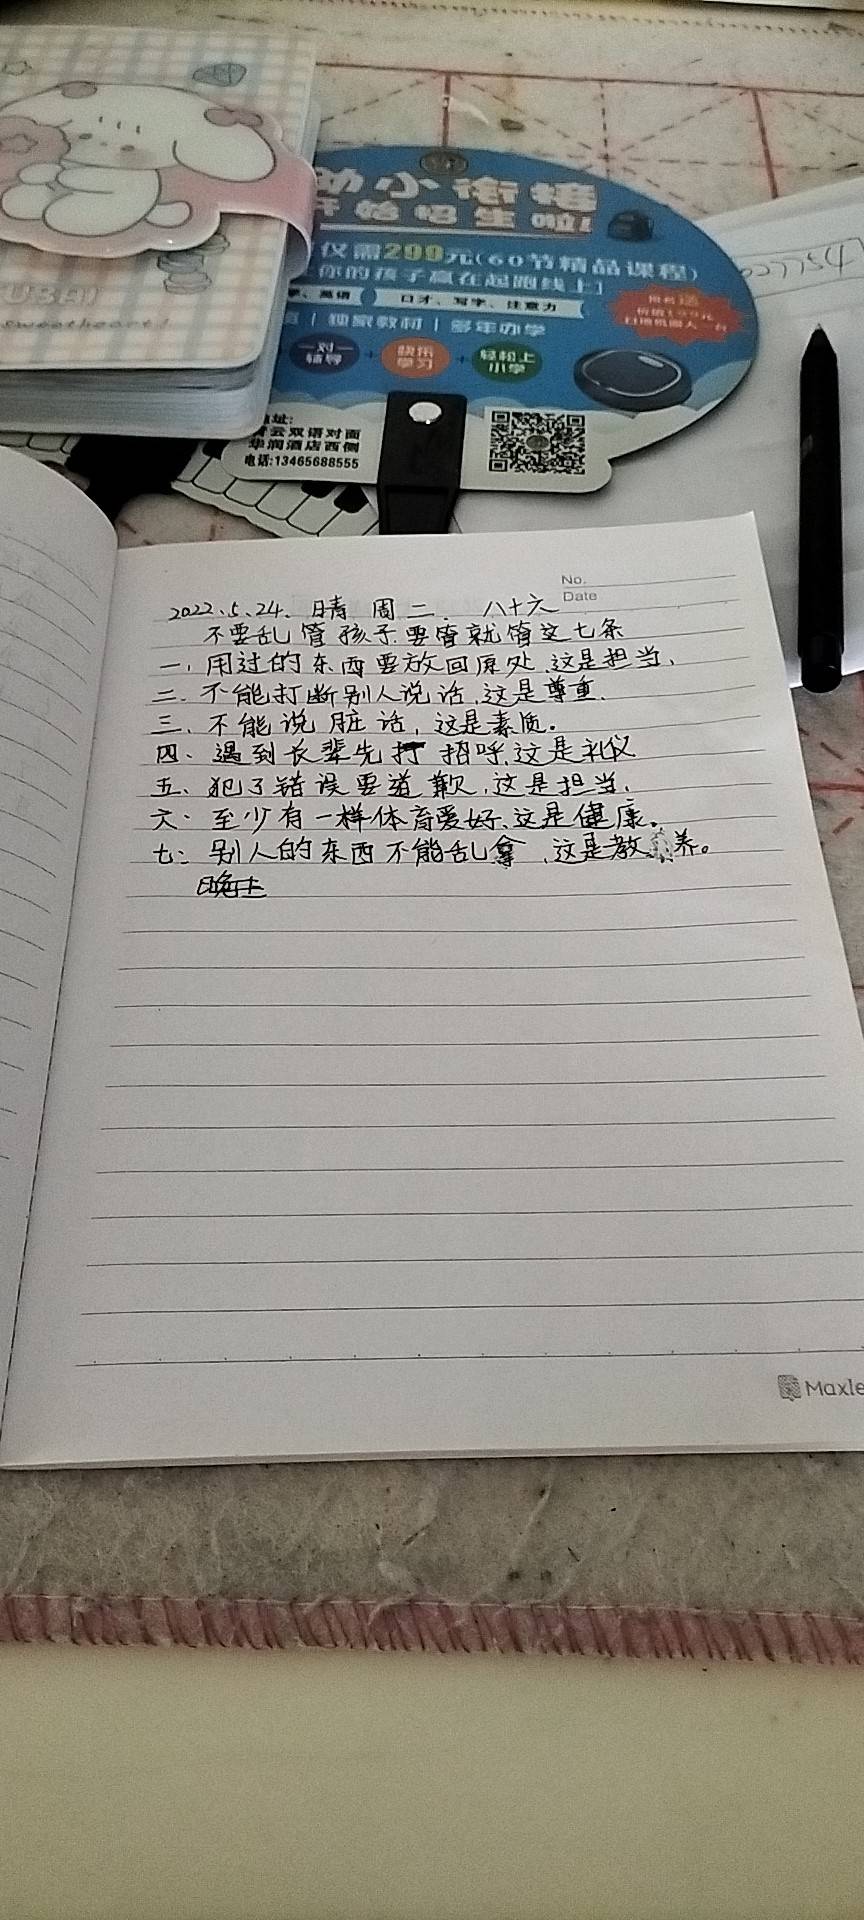 幼小衔接
开始招生啦!
仅需299元(60节精品课程)
你的孩子赢在起跑线上]
英语
口才、写字、注意力
独家教材 | 多年办学
一对一
辅导
+
快乐
学习
+
轻松上
小学
云双语对面
华润酒店西侧
电话:13465688555
sweetheart!
No.
Date
2022.5.24. 晴 周二. 八十六
不要乱管孩子.要管就管这七条
一,用过的东西要放回原处,这是担当,
二.不能打断别人说话,这是尊重.
三,不能说脏话,这是素质.
四、遇到长辈先打招呼,这是礼仪
五、犯了错误要道歉,这是担当,
六、至少有一样体育爱好,这是健康.
七:别人的东西不能乱拿,这是教养。
Maxle